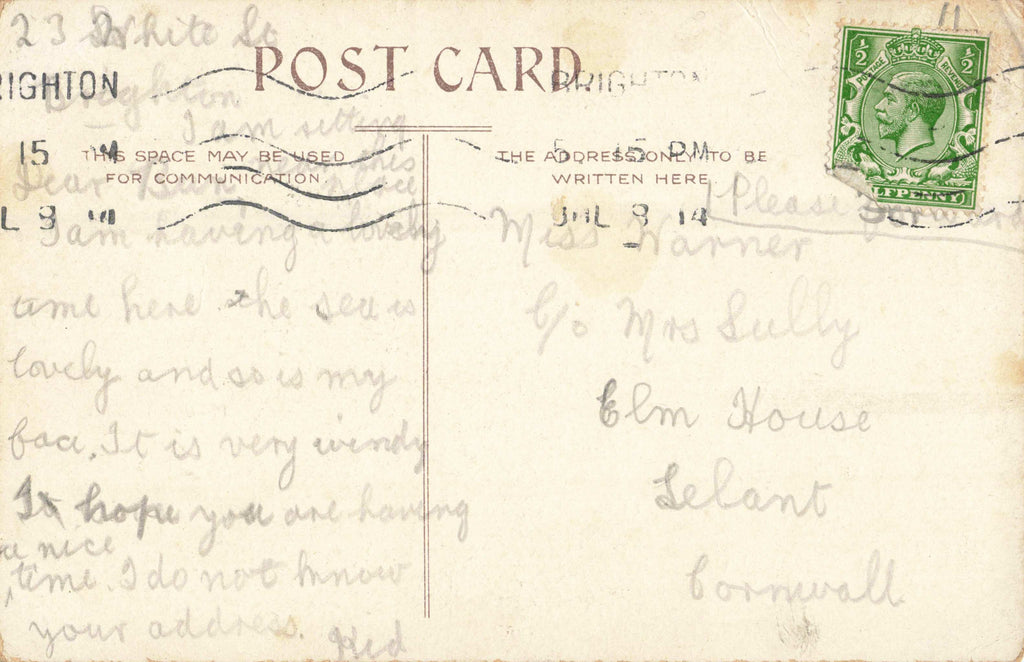 23 White St
POST CARD
11
½ ½
POSTAGE REVENUE
HALFPENNY
BRIGHTON
Brighton
BRIGHTON
I am sitting
this
place
15 PM
5 15 PM
JUL 8 14
JUL 8 14
THIS SPACE MAY BE USED
FOR COMMUNICATION
THE ADDRESS ONLY TO BE
WRITTEN HERE
Dear
I am having a lovely
time here the sea is
lovely and so is my
face. It is very windy
I hope you are having
a nice
time. I do not know
your address.
Please forward
Miss Warner
C/o Mrs Sully
Elm House
Lelant
Cornwall